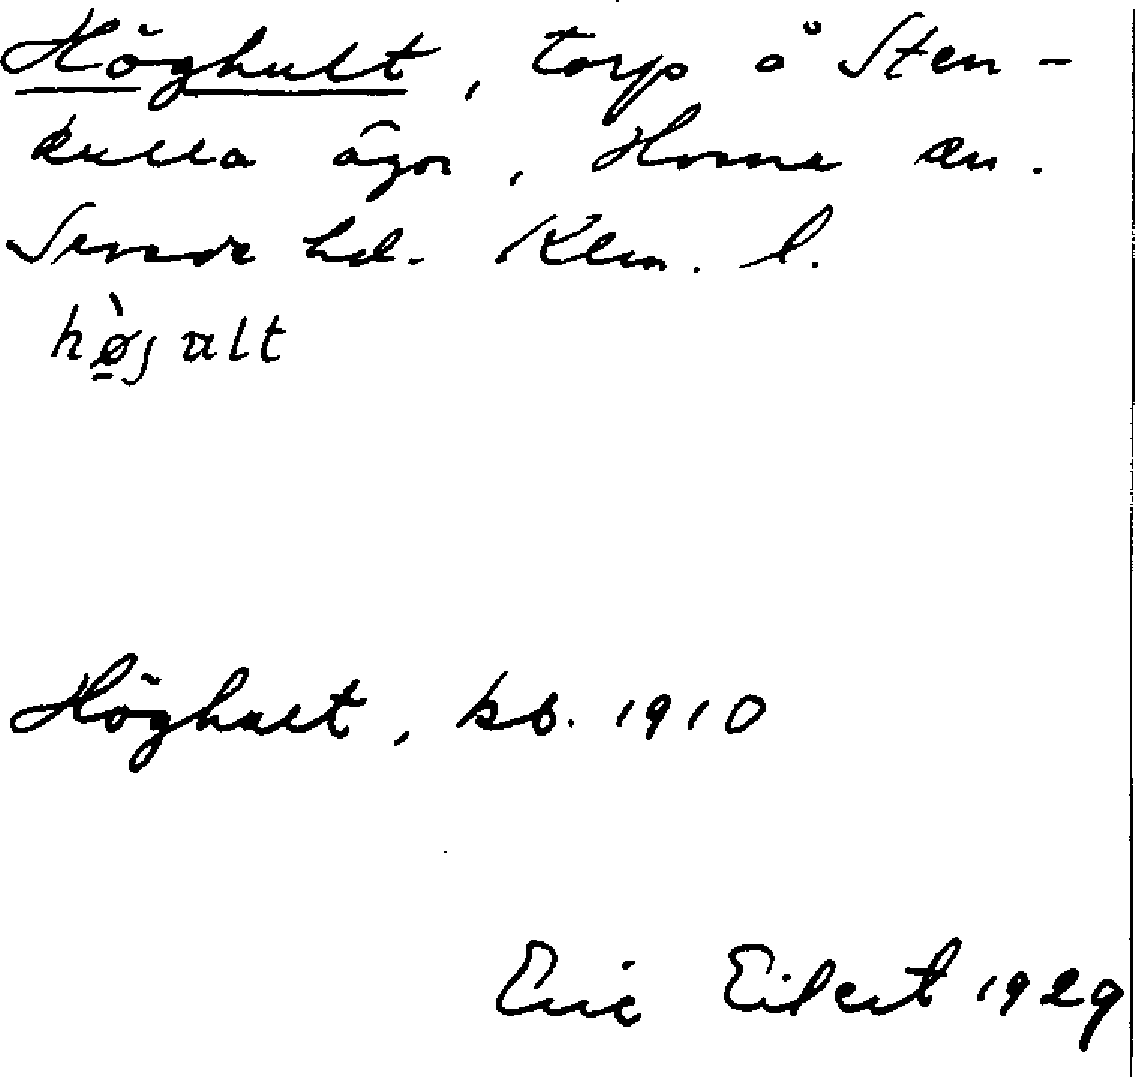 Höghult, torp å Sten-
kulla ägor, Hvena sn.
Sevede hd. Klm. l.
hø̠̀jult
Höghult, kb. 1910
Eric Eilert 1929